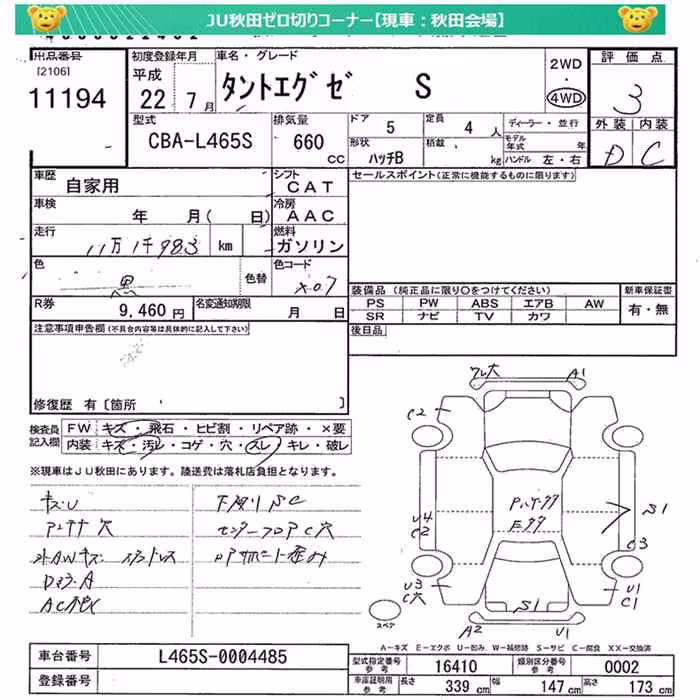 JU秋田ゼロ切りコーナー【現車：秋田会場】
出品番号 初度登録年月 車名・グレード 2WD・4WD 評価点
[2106] 平成
11194 22年7月 タントエグゼ S 3
型式 排気量 ドア 5 定員 4人 ディーラー・並行 外装 内装
CBA-L465S 660cc 形状 ハッチB 積載 kg モデル年式 年 ハンドル 左・右 D C
車歴 自家用 シフト CAT セールスポイント(正常に機能するものに限ります)
車検 年 月( 日) 冷房 AAC
走行 11万1千983 km 燃料 ガソリン
色 黒 色替 色コード X07
装備品 (純正品に限り○をつけてください) 新車保証書
PS PW ABS エアB AW 有・無
SR ナビ TV カワ
R券 9,460円 名変通知期限 月 日
後日品
注意事項申告欄(不具合内容等は具体的に記入して下さい)
修復歴 有 [箇所 ]
検査員記入欄 FW キズ・飛石・ヒビ割・リペア跡・×要
内装 キズ・汚レ・コゲ・穴・スレ・キレ・破レ
※現車はJU秋田にあります。陸送費は落札店負担となります。
キズU
アンテナ穴
下廻りSC
センターフロアC穴
ワレ大 A1
C2
U4
C2
S1
C3
U3
C穴
U1
C1
S1
A2 U1
スペア
A-キズ E-エクボ U-凹み W-補修跡 S-サビ C-腐食 XX-交換済
車台番号 L465S-0004485
登録番号
型式指定番号 参考 16410 類別区分番号 参考 0002
車庫証明用 参考 長さ 339cm 幅 147cm 高さ 173cm